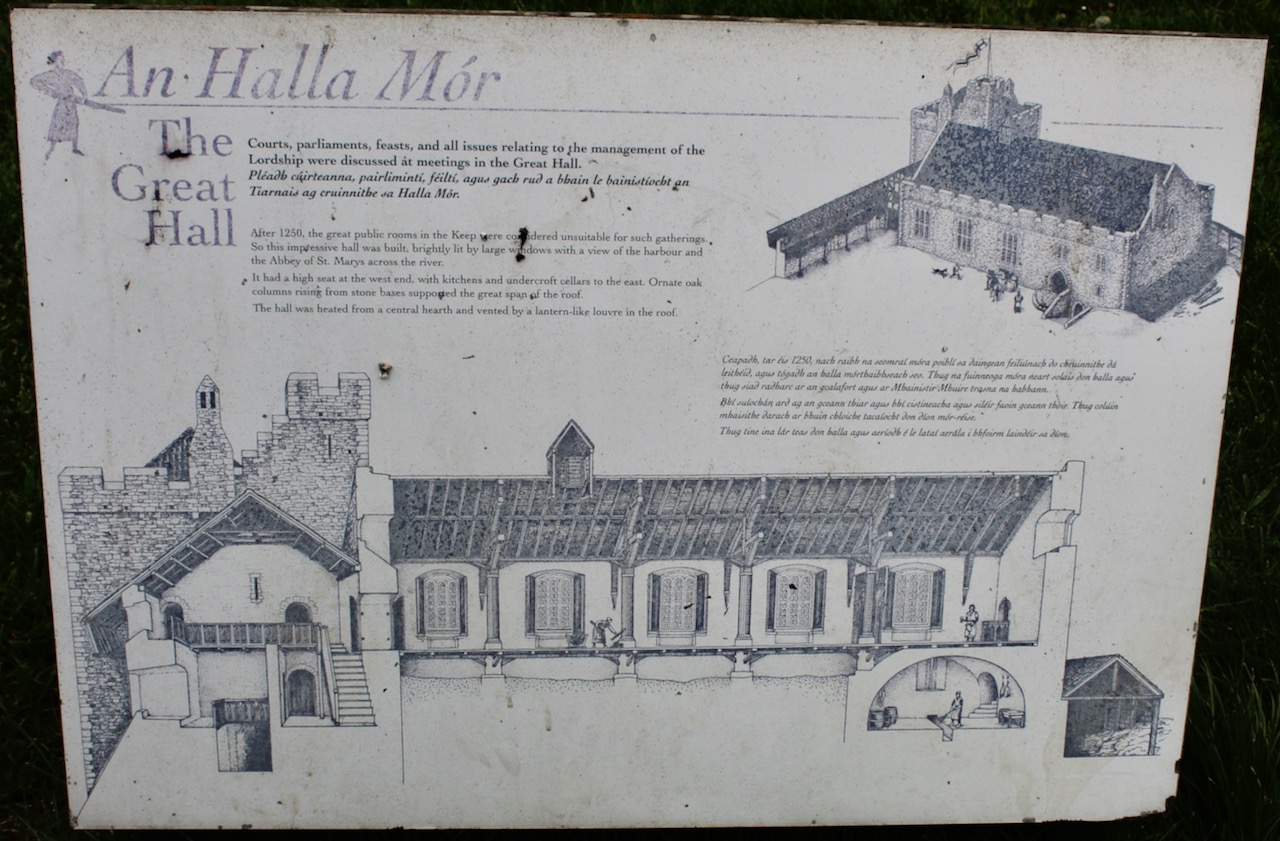 An Halla Mór
The
Great
Hall
Courts, parliaments, feasts, and all issues relating to the management of the
Lordship were discussed at meetings in the Great Hall.
Pléadh cúirteanna, pairlimintí, féiltí, agus gach rud a bhain le bainistíocht an
Tiarnais ag cruinnithe sa Halla Mór.
After 1250, the great public rooms in the Keep were considered unsuitable for such gatherings.
So this impressive hall was built, brightly lit by large windows with a view of the harbour and
the Abbey of St. Marys across the river.
It had a high seat at the west end, with kitchens and undercroft cellars to the east. Ornate oak
columns rising from stone bases supported the great span of the roof.
The hall was heated from a central hearth and vented by a lantern-like louvre in the roof.
Ceapadh, tar éis 1250, nach raibh na seomraí móra poiblí sa daingean feiliúnach do chruinnithe dá
leithéid, agus tógadh an halla mórthaibhseach seo. Thug na fuinneoga móra neart solais don halla agus
thug siad radharc ar an gcalafort agus ar Mhainistir Mhuire trasna na habhann.
Bhí suíochán ard ag an gceann thiar agus bhí cistineacha agus siléir faoin gceann thoir. Thug colúin
mhaisithe darach ar bhuin chloiche tacaíocht don díon mór-réise.
Thug tine ina lár teas don halla agus aeríodh é le lataí aerála i bhfoirm laindéir sa díon.